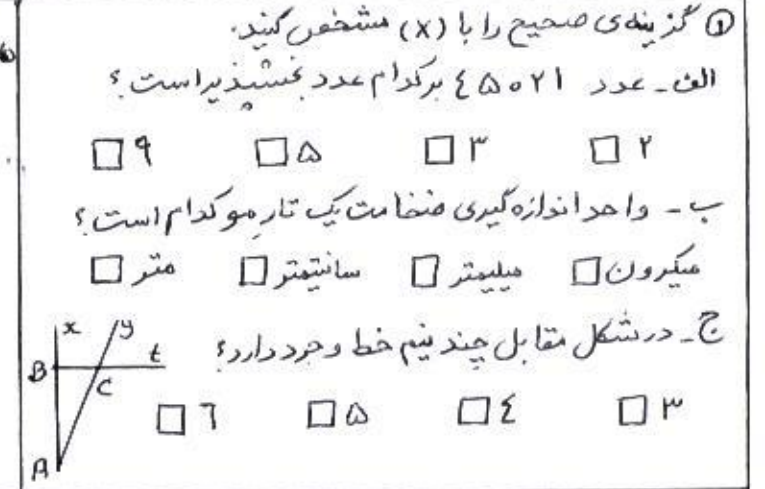 ① گزینه‌ی صحیح را با (x) مشخص کنید.
الف - عدد ٤۵۰۲۱ بر کدام عدد بخشپذیر است؟
۲ □ ۳ □ ۵ □ ۹ □
ب - واحد اندازه گیری ضخامت یک تار مو کدام است؟
میکرون □ میلیمتر □ سانتیمتر □ متر □
ج - در شکل مقابل چند نیم خط وجود دارد؟
۳ □ ٤ □ ۵ □ ٦ □
x y
B C t
A